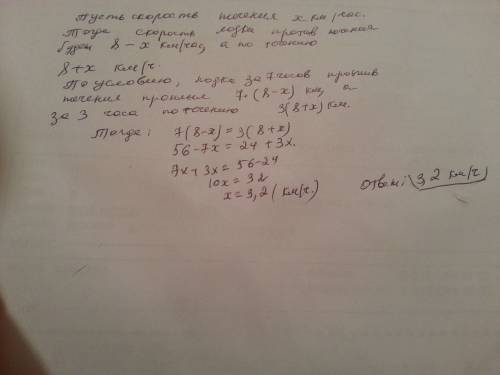 Пусть скорость течения x км/час.
Тогда скорость лодки против течения
будет 8-x км/час, а по течению
8+x км/ч.
По условию, лодка за 7 часов против
течения проплыл 7·(8-x) км, а
за 3 часа по течению 3(8+x) км.
Тогда: 7(8-x) = 3(8+x)
56-7x = 24+3x.
7x+3x = 56-24
10x = 32
x = 3,2 (км/ч.)
Ответ: 3,2 км/ч.